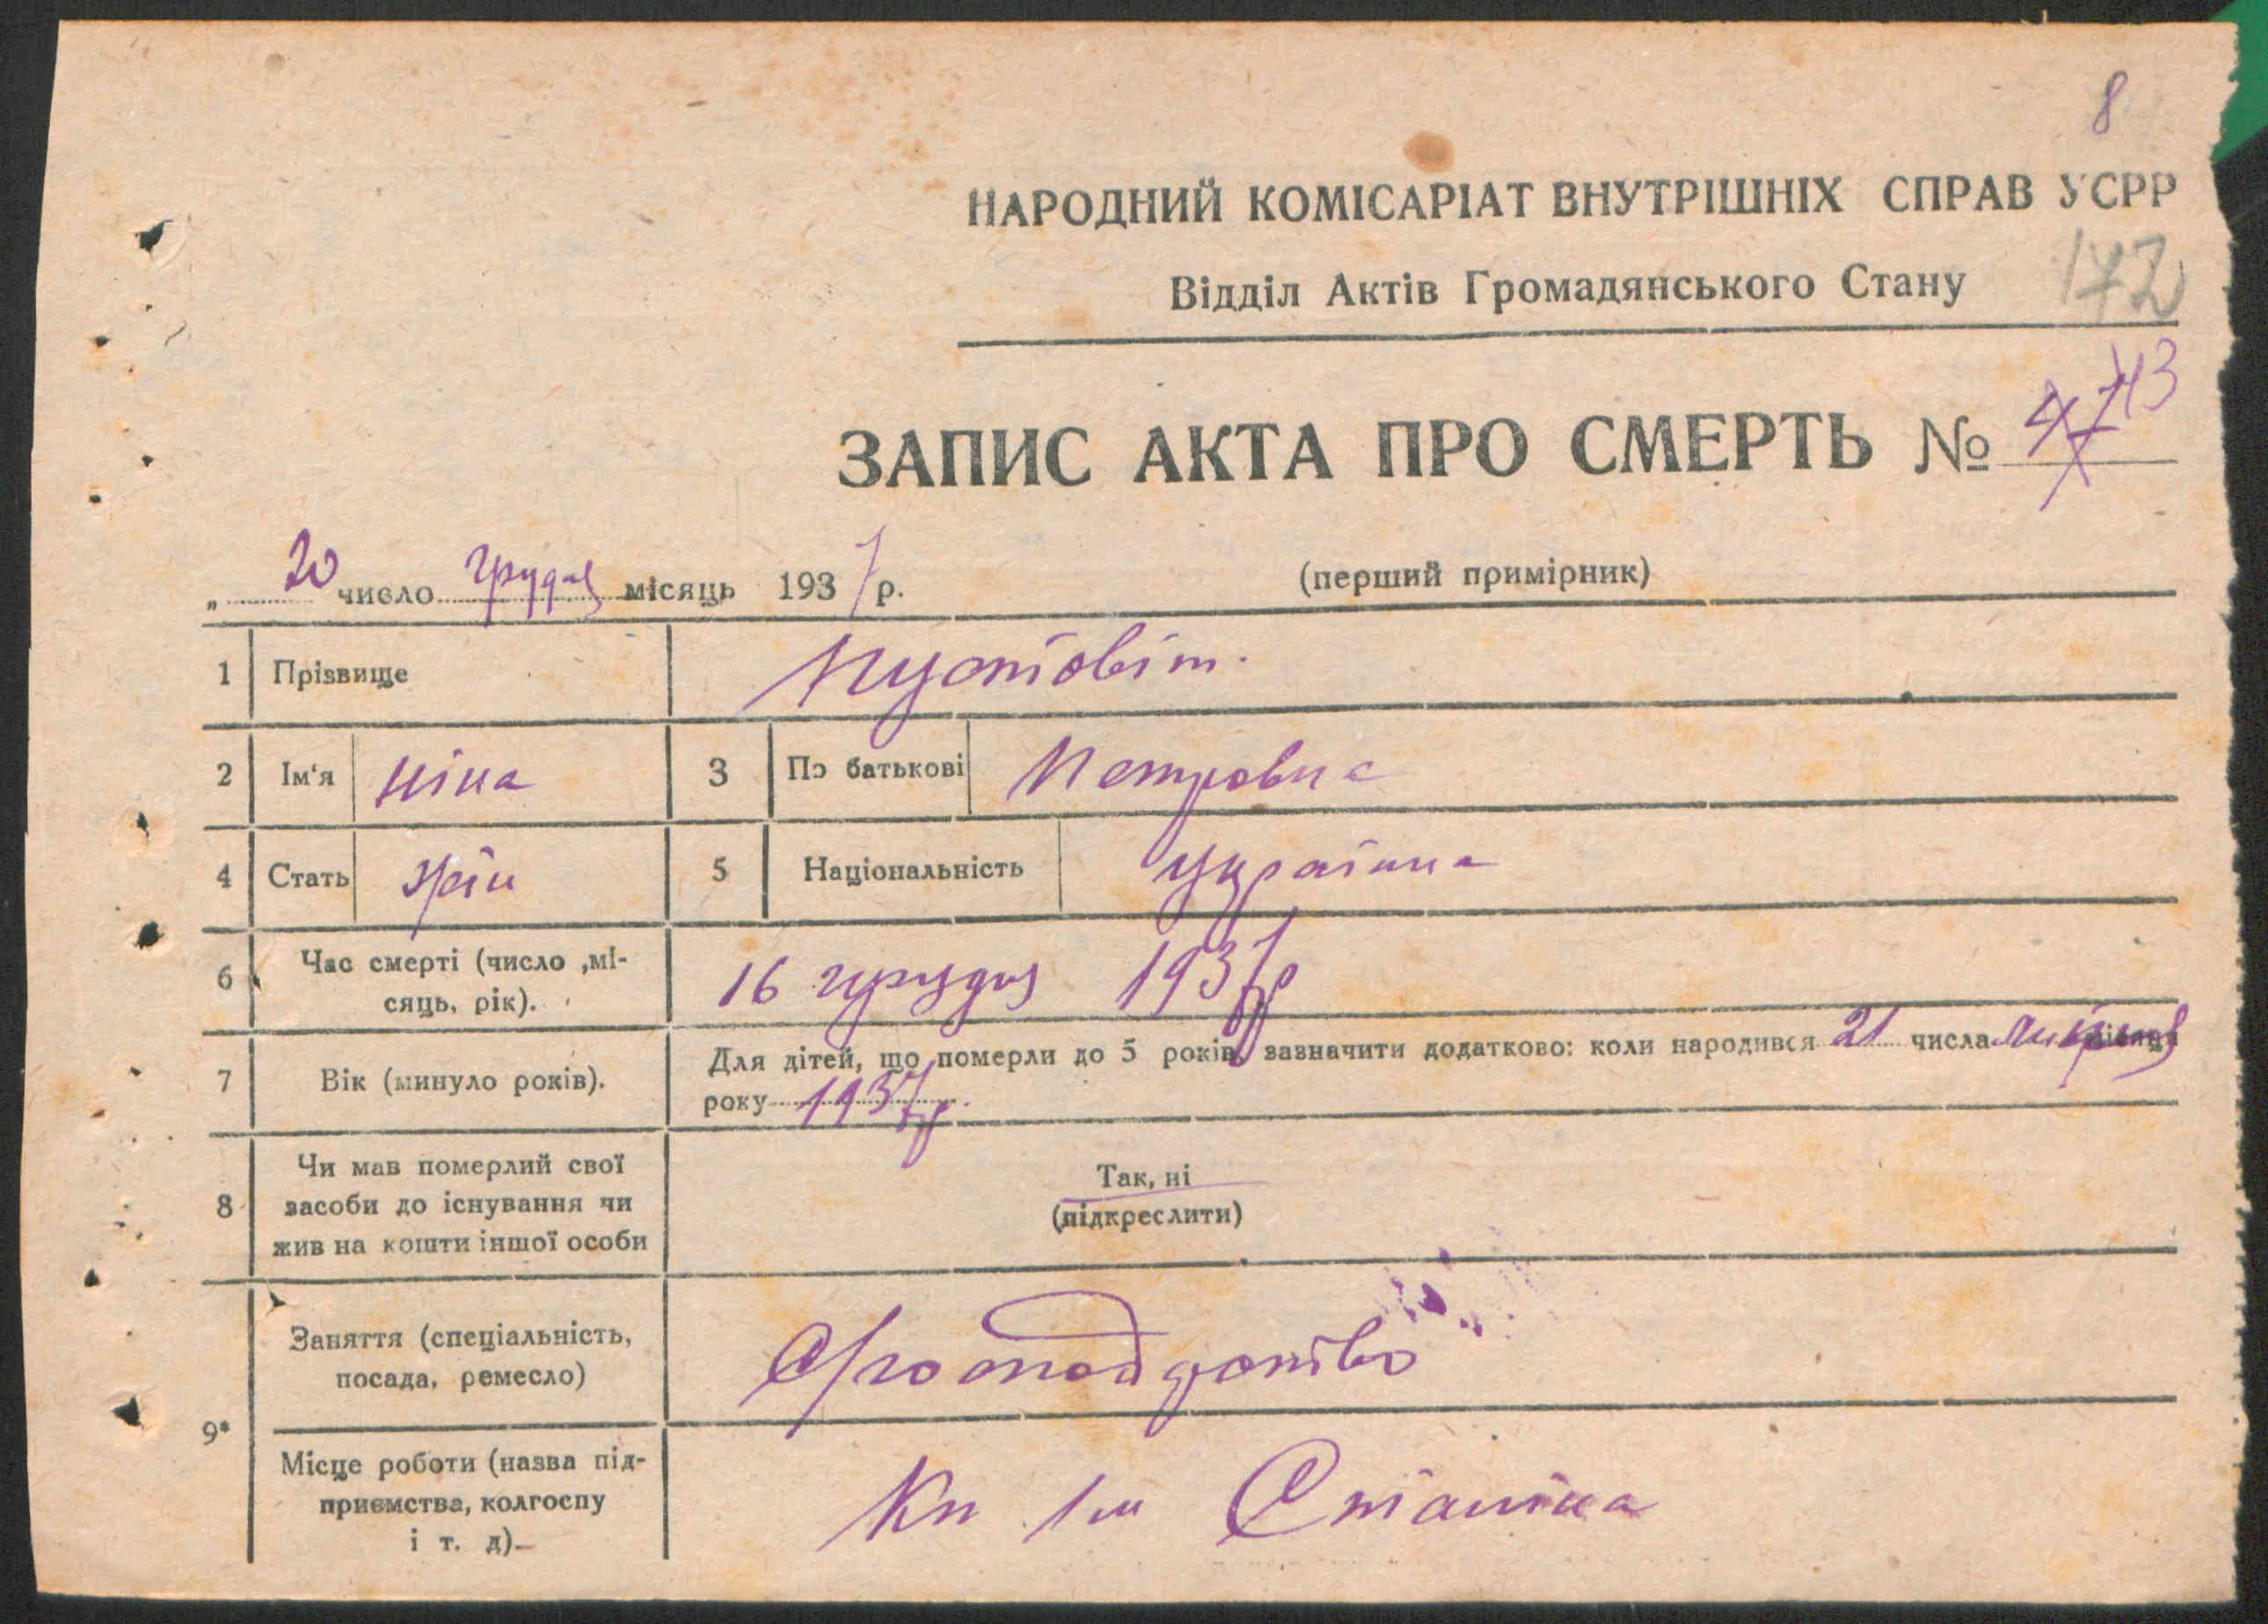 8
НАРОДНИЙ КОМІСАРІАТ ВНУТРІШНІХ СПРАВ УСРР
Відділ Актів Громадянського Стану 172
ЗАПИС АКТА ПРО СМЕРТЬ №
„ 20 число грудня місяць 1937 р. (перший примірник)
1 Прізвище Пустовіт.
2 Ім‘я Ніна 3 По батькові Петровна
4 Стать жін 5 Національність Українка
6 Час смерті (число ,мі-
сяць, рік). 16 грудня 1937 р
7 Вік (минуло років). Для дітей, що померли до 5 років, зазначити додатково: коли народився 21 числа місяця
року 1937 р.
8 Чи мав померлий свої
засоби до існування чи
жив на кошти іншої особи
Так, ні
(підкреслити)
9* Заняття (спеціальність,
посада, ремесло)
Місце роботи (назва під-
приємства, колгоспу
і т. д)
Кп Ім Сталіна